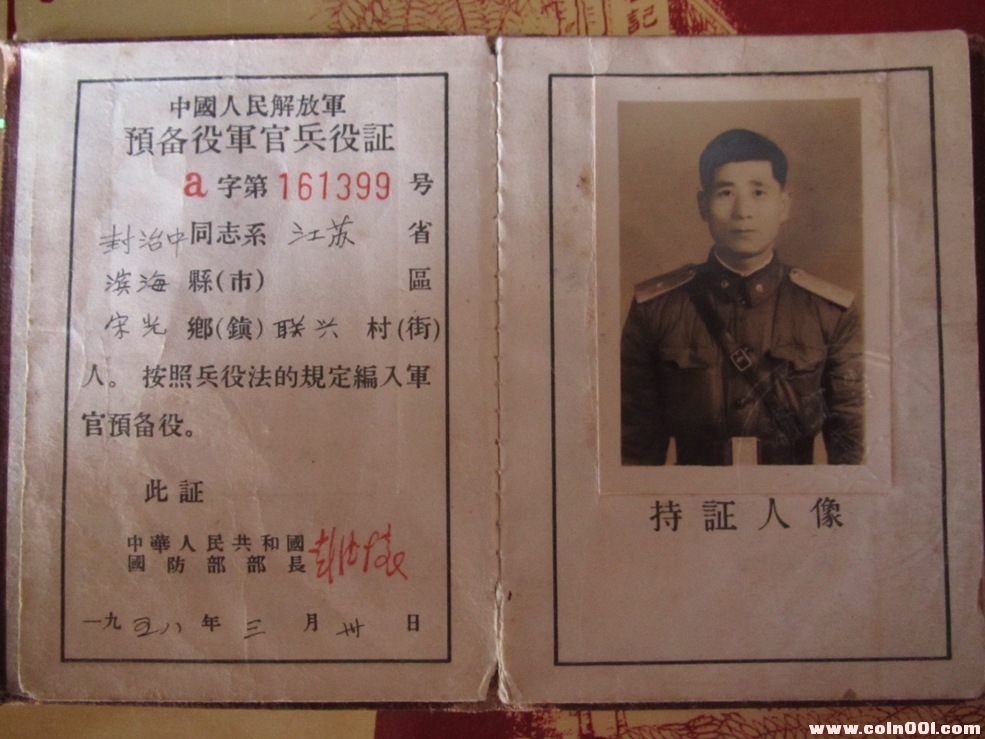 記
中國人民解放軍
預备役軍官兵役証
a 字第 161399 号
封治中同志系 江苏 省
滨海 縣(市) 區
宋光 鄉(鎮) 联兴 村(街)
人。 按照兵役法的規定編入軍
官預备役。
此証
中華人民共和國
國防部部長 彭德懷
一九五八年三月卅日
持証人像
www.coln001.com